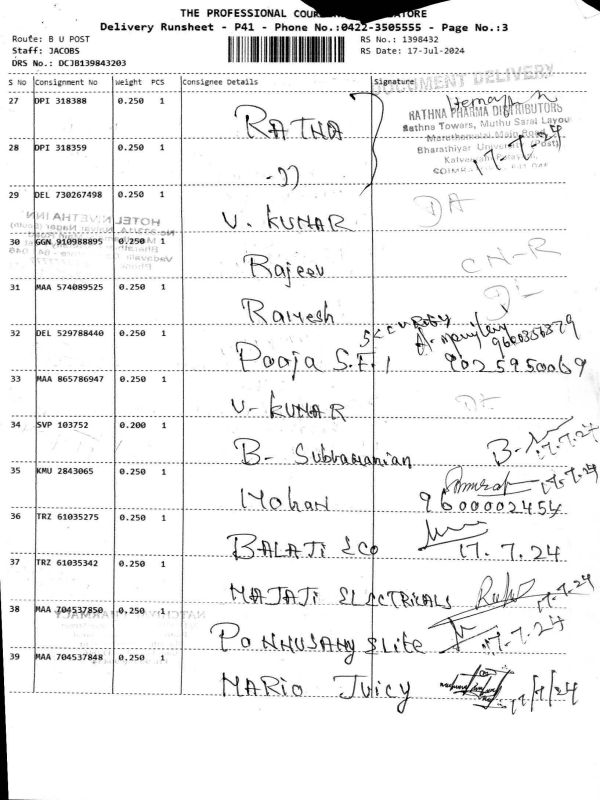 THE PROFESSIONAL
Delivery Runsheet - P41 - Phone No.:0422-3505555 - Page No.:3
Route: B U POST RS No.: 1398432
Staff: JACOBS RS Date: 17-Jul-2024
DRS No.: DCJB139843203
DOCUMENT DELIVERY
S No Consignment No Weight PCS Consignee Details Signature
27 DPI 318388 0.250 1 RATNA
RATHNA PHARMA DISTRIBUTORS
Rathna Towers, Muthu Sarai Layou
Maruthamalai Main Road
Bharathiyar University (Post)
28 DPI 318359 0.250 1 -11 17-7-24
29 DEL 730267498 0.250 1 V. KUMAR DA
HOTEL NIVETHA INN
30 GGN 910988895 0.250 1 Rajeev CN-R
31 MAA 574089525 0.250 1 Ramesh
SECURITY
32 DEL 529788440 0.250 1 Pooja S.F. 9025950069
33 MAA 865786947 0.250 1 V- KUMAR
34 SVP 103752 0.200 1 B- Subramanian 17.7.24
35 KMU 2843065 0.250 1 Mohan 17.7.24
9600002454
36 TRZ 61035275 0.250 1 BALAJI &CO 17.7.24
37 TRZ 61035342 0.250 1 MAJAJI ELECTRICALS 17.7.24
38 MAA 704537850 0.250 1 PONNUSAMY ELITE 17.7.24
39 MAA 704537848 0.250 1 MARIO JUICY 17/7/24